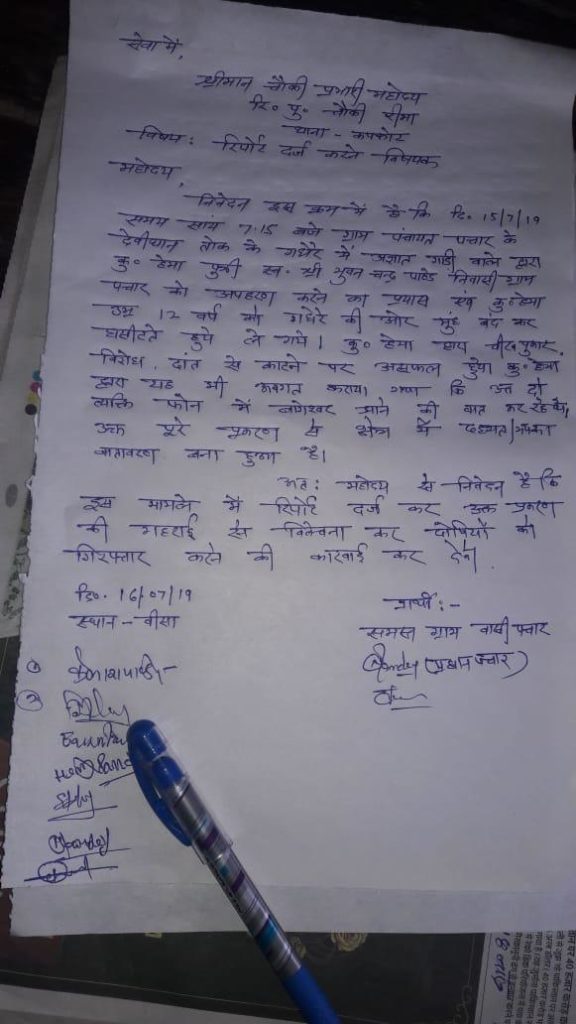 सेवा में,
श्रीमान चौकी प्रभारी महोदय
रि॰ पु॰ चौकी रीमा
थाना - कपकोट
विषय: रिपोर्ट दर्ज करने विषयक
महोदय,
निवेदन इस क्रम में है कि दि. 15/7/19
समय सांय 7:15 बजे ग्राम पंचायत पचार के
देवीथान तोक के गधेरे में अज्ञात गाडी वाले द्वारा
कु॰ हेमा पुत्री स्व. श्री भुवन चन्द्र पाण्डे निवासी ग्राम
पचार को अपहरण करने का प्रयास एवं कु॰ हेमा
उम्र 12 वर्ष को गधेरे की ओर मुंह बंद कर
घसीटते हुये ले गये। कु॰ हेमा द्वारा चीख पुकार,
विरोध, दांत से काटने पर असफल हुये कु॰ हेमा
द्वारा यह भी अवगत कराया गया कि उक्त दो
व्यक्ति फोन में बागेश्वर आने की बात कर रहे थे,
उक्त पूरे प्रकरण से क्षेत्र में दहशत/भय का
वातावरण बना हुआ है।
अत: महोदय से निवेदन है कि
इस मामले में रिपोर्ट दर्ज कर उक्त प्रकरण
की गहराई से विवेचना कर दोषियों को
गिरफ्तार करने की कारवाई कर देंगे।
दि॰. 16/07/19
स्थान - रीमा
प्रार्थी:-
समस्त ग्राम वासी पचार
Pandey (प्रधान पचार)
Pandey